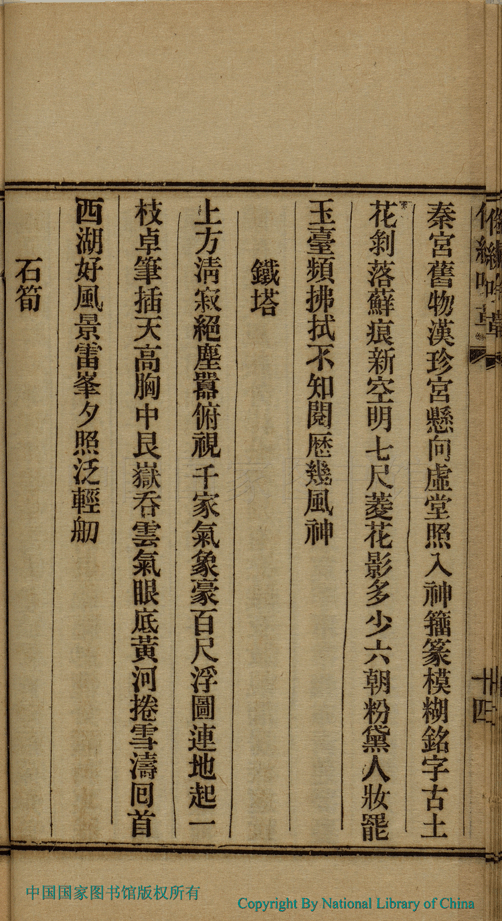 十四
秦宮舊物漢珍宮懸向虛堂照入神籀篆模糊銘字古土
花剝落蘚痕新空明七尺菱花影多少六朝粉黛人妝罷
玉臺頻拂拭不知閱歷幾風神
鐵塔
上方淸寂絕塵囂俯視千家氣象豪百尺浮圖連地起一
枝卓筆插天高胸中艮嶽吞雲氣眼底黃河捲雪濤囘首
西湖好風景雷峯夕照泛輕舠
石筍
中国国家图书馆版权所有
Copyright By National Library of China